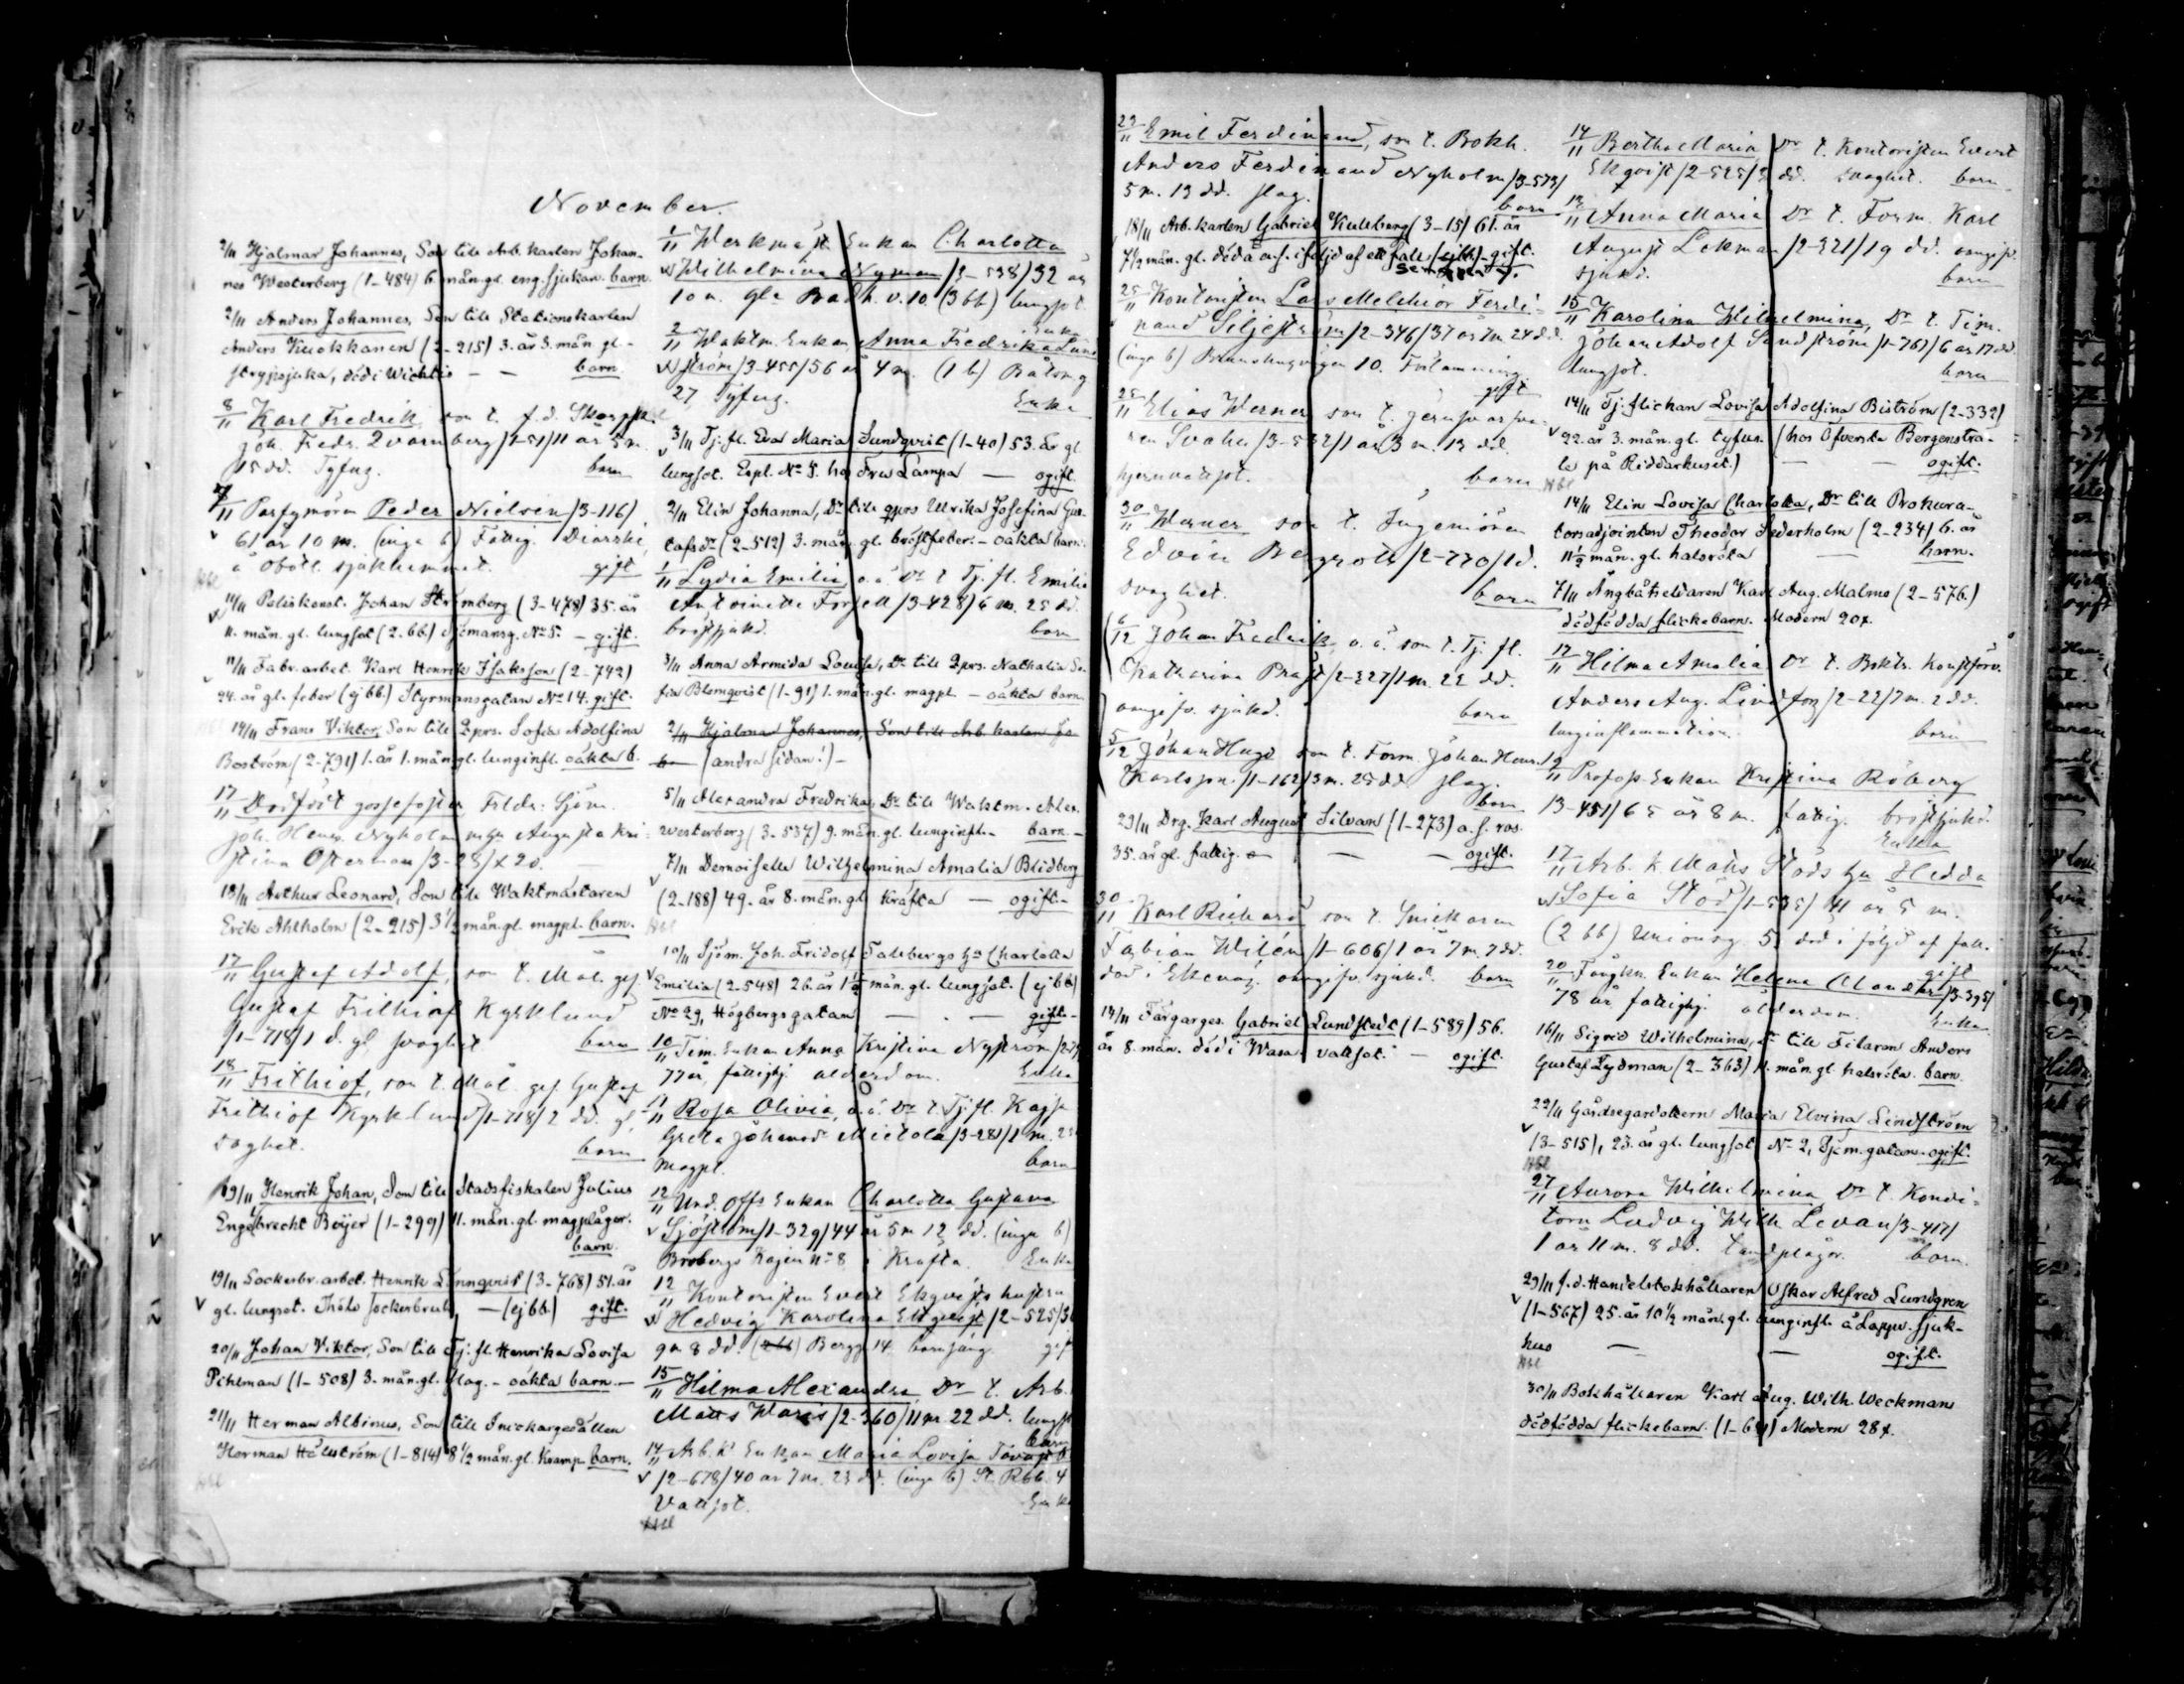 November.
2/11 Hjalmar Johannes, Son till Arb. karlen Johan-
nes Westerberg (1-484) 6 mån. gl. eng. sjukan. barn.
2/11 Anders Johannes, Son till Stationskarlen
Anders Kuokkanen (2-215) 3. år 3. mån gl. -
strypsjuka, död i Wichtis - - barn.
8/11 Karl Fredrik son t. f. d.
Joh. Fredr. Qvarnberg /2-51/ 11 år 5 m.
15 dd. Tyfus. barn
Parfymören Peder Nielsen /3-116/
61 år 10 m. (inga b) Fattig. Diarrhé,
å Obotl. sjukhemmet. gift
11/11 Poliskonst. Johan Strömberg (3-478) 35. år
11. mån. gl. lungsot (2. bb.) No 5. - gift.
11/11 Fabr. arbet. Karl Henrik Isaksson (2-742)
24. år gl. feber (ej bb.) Styrmansgatan No 14. gift.
14/11 Frans Viktor, Son till Qprs. Sofia Adolfina
Boström (2-791) 1. år 1. mån. gl. lunginfl. oäkta b.
17/11 Dödfödt gossefoster Frldr: Sjöm.
Joh. Henr. Nyholm o. h. Augusta Kri-
stina Österman /3-28/ x 20.
13/11 Arthur Leonard, Son till Waktmästaren
Erik Ahlholm (2-215) 3 1/2 mån. gl. magpl. barn.
17/11 Gustaf Adolf, son t. Mål. ges.
Gustaf Frithiof Kyrklund
/1-718/ 1 d. gl. svaghet barn
18/11 Frithiof, son t. Mål. ges. Gustaf
Frithiof Kyrklund /1-718/ 2 dd. gl.
svaghet. barn
19/11 Henrik Johan, Son till Stadsfiskalen Julius
Engelbrecht Böijer (1-299) 11. mån. gl. magplågor.
barn.
19/11 Sockerbr. arbet. Henrik Lönnqvist (3-768) 51. år
gl. lungsot. Thölö sockerbruk, - (ej bb.) gift.
20/11 Johan Viktor, Son till Tj. fl. Henrika Lovisa
Pihlman (1-508) 3. mån. gl. slag. - oäkta barn. -
21/11 Herman Albinus, Son till Snickargesällen
Herman Hällström (1-814) 8 1/2 mån. gl. kramp barn.
1/11 Werkmäst. Enkan Charlotta
Wilhelmina Nyman /3-538/ 32 år
10 m. Gla Badh. v. 10. (3 bb.) lungsot
Enka
2/11 Waktm. Enkan Anna Fredrika Lind
ström /3-455/ 56 år 4 m. (1 b) Båtsm. g
27 Tyfus. Enka
3/11 Tj. fl. Eva Maria Sundqvist (1-40) 53. år gl.
lungsot. Espl. No 5. hos Fru Lampa - ogift.
2/11 Elin Johanna, Dr till qprs Ulrika Josefina Gus-
tafsdr (2-512) 3. mån. gl. bröstfeber. - oäkta barn.
1/11 Lydia Emilia o. ä. Dr t. Tj. fl. Emilia
Antoinette Forsell /3-428/ 6 m. 25 dd.
bröstsjukd. barn
3/11 Anna Armida Lovisa, Dr till Qprs. Nathalia So-
fia Blomqvist (1-91) 1. mån. gl. magpl. - oäkta barn
2/11 Hjalmar Johannes, Son till Arb. karlen Jo-
(andra sidan!) -
5/11 Alexandra Fredrika, Dr till Waktm. Alex.
Westerberg (3-537) 9. mån. gl. lunginfl. - barn. -
7/11 Demoiselle Wilhelmina Amalia Blidberg
(2-188) 49. år 8. mån. gl. Kräfta - ogift. -
10/11 Sjöm. Joh. Fridolf Tallbergs ha Charlotta
Emilia (2-548) 26. år 1 1/2 mån. gl. lungsot. (ej bb)
No 29, Högbergsgatan - . - gift. -
10/11 Tim. Enkan Anna Kristina Nyström
77 år, fattighj. ålderdom. Enka
11/11 Rosa Olivia, o. ä. Dr t. Tj. fl. Kajsa
Greta Johansdr Mietola /3-281/ 1 m.
Magpl. barn
12/11 Und. Offs Enkan Charlotta Gustava
Sjöblom /1-329/ 44 år 5 m 12 dd. (inga b)
Brobergs Kajen No 8 Kräfta. Enka
12/11 Kontoristen Evert Ekqvists hustru
Hedvig Karolina Ekqvist /2-525/
9 m 8 dd. Bergg. 14 barnsäng. gift
15/11 Hilma Alexandra Dr t. Arb.
Matts Waris /2-360/ 11 m. 22 dd. lungs
barn
14/11 Arb. ks Enkan Maria Lovisa
/2-678/ 40 år 7 m. 23 dd. (inga b) St. Rbb. 4
Vattsot. Enka
22/11 Emil Ferdinand, son t. Bokh.
Anders Ferdinand Nyholm /3-573/
5 m. 13 dd. slag. barn
18/11 Arb. karlen Gabriel Kullberg (3-15) 61. år
7 1/2 mån. gl. döda a. s. i följd af ett fall. (ej bb) - gift.
25/11 Kontoristen Lars Melchior Ferdi-
nand Siljeström /2-346/ 37 år 7 m. 24 dd.
(inga b) Brunnshusvägen 10. Förlamning.
gift
25/11 Elias Werner son t.
Svahn /3-532/ 1 år 3 m. 13 dd.
hjernvattsot. barn
30/11 Werner son t. Ingeniören
Edvin Bergroth /2-770/ 1 d.
svaghet. barn
6/12 Johan Fredrik o. ä. son t. Tj. fl.
Katharina /2-327/ 1 m. 22 dd.
engelska sjukd. barn
5/12 Johan Hugo son t. Form. Johan Henr.
Karlsson /1-162/ 3 m. 25 dd slag.
barn
29/11 Drg. Karl August Silvan (1-273) a. s. ros.
35. år gl. fattig. - - - ogift.
30/11 Karl Richard son t. Snickaren
Fabian Wilén /1-606/ 1 år 7 m. 7 dd.
död i Ekenäs. engelska sjukd. barn
14/11 Färgarges. Gabriel Lundstedt (1-589) 56.
år 8. mån. död i Wasa. vattsot. - ogift.
14/11 Bertha Maria Dr t. Kontoristen Evert
Ekqvist /2-525/ 2 dd. svaghet. barn
13/11 Anna Maria Dr t. Form. Karl
August Lekman /2-321/ 19 dd. engelska
sjukd. barn
15/11 Karolina Wilhelmina, Dr t. Tim.
Johan Adolf Sandström /1-761/ 6 år 17 dd.
lungsot. barn
14/11 Tj. flickan Lovisa Adolfina Biström (2-332)
22. år 3. mån. gl. tyfus. (hos Öfverste Bergenstrå-
le på Riddarhuset.) - - ogift.
14/11 Elin Lovisa Charlotta, Dr till Prokura-
torsadjointen Theodor Sederholm (2-234) 6. år
11 1/2 mån. gl. halsröta - barn.
7/11 Ångbåtseldaren Karl Aug. Malms (2-576.)
dödfödda flickebarn. Modern 20 x.
17/11 Hilma Amalia Dr t. Boktr. Konstförv.
Anders Aug. Lindfors /2-22/ 7 m. 2 dd.
lunginflammation. barn
19/11 Profoss-Enkan Kristina Röberg
/3-451/ 65 år 8 m. fattig. bröstsjukd.
Enka
17/11 Arb. k. Matts Stöds ha Hedda
Sofia Stöd /1-535/ 41 år 5 m.
(2 bb) Unionsg 5. död i följd af fall.
gift
20/11 Enkan Helena /3-395/
78 år fattighj. ålderdom. Enka
16/11 Sigrid Wilhelmina, Dr till Filaren Anders
Gustaf Lydman (2-363) 11. mån. gl. halsröta. barn.
22/11 Gårdsegardottern Maria Elvina Lindström
(3-515), 23. år gl. lungsot No 2, Sjöm. gatan. - ogift.
27/11 Aurora Wilhelmina Dr t. Kondi-
torn Ludvig Wilh. Levan /3-417/
1 år 11 m. 8 dd. tandplågor. barn.
29/11 f. d. Handelsbokhållaren Oskar Alfred Lundgren
(1-567) 25. år 10 1/2 mån. gl. lunginfl. å Lappv. sjuk-
hus - - ogift.
30/11 Bokhållaren Karl Aug. Wilh. Weckman
dödfödda flickebarn. Modern 28 x.